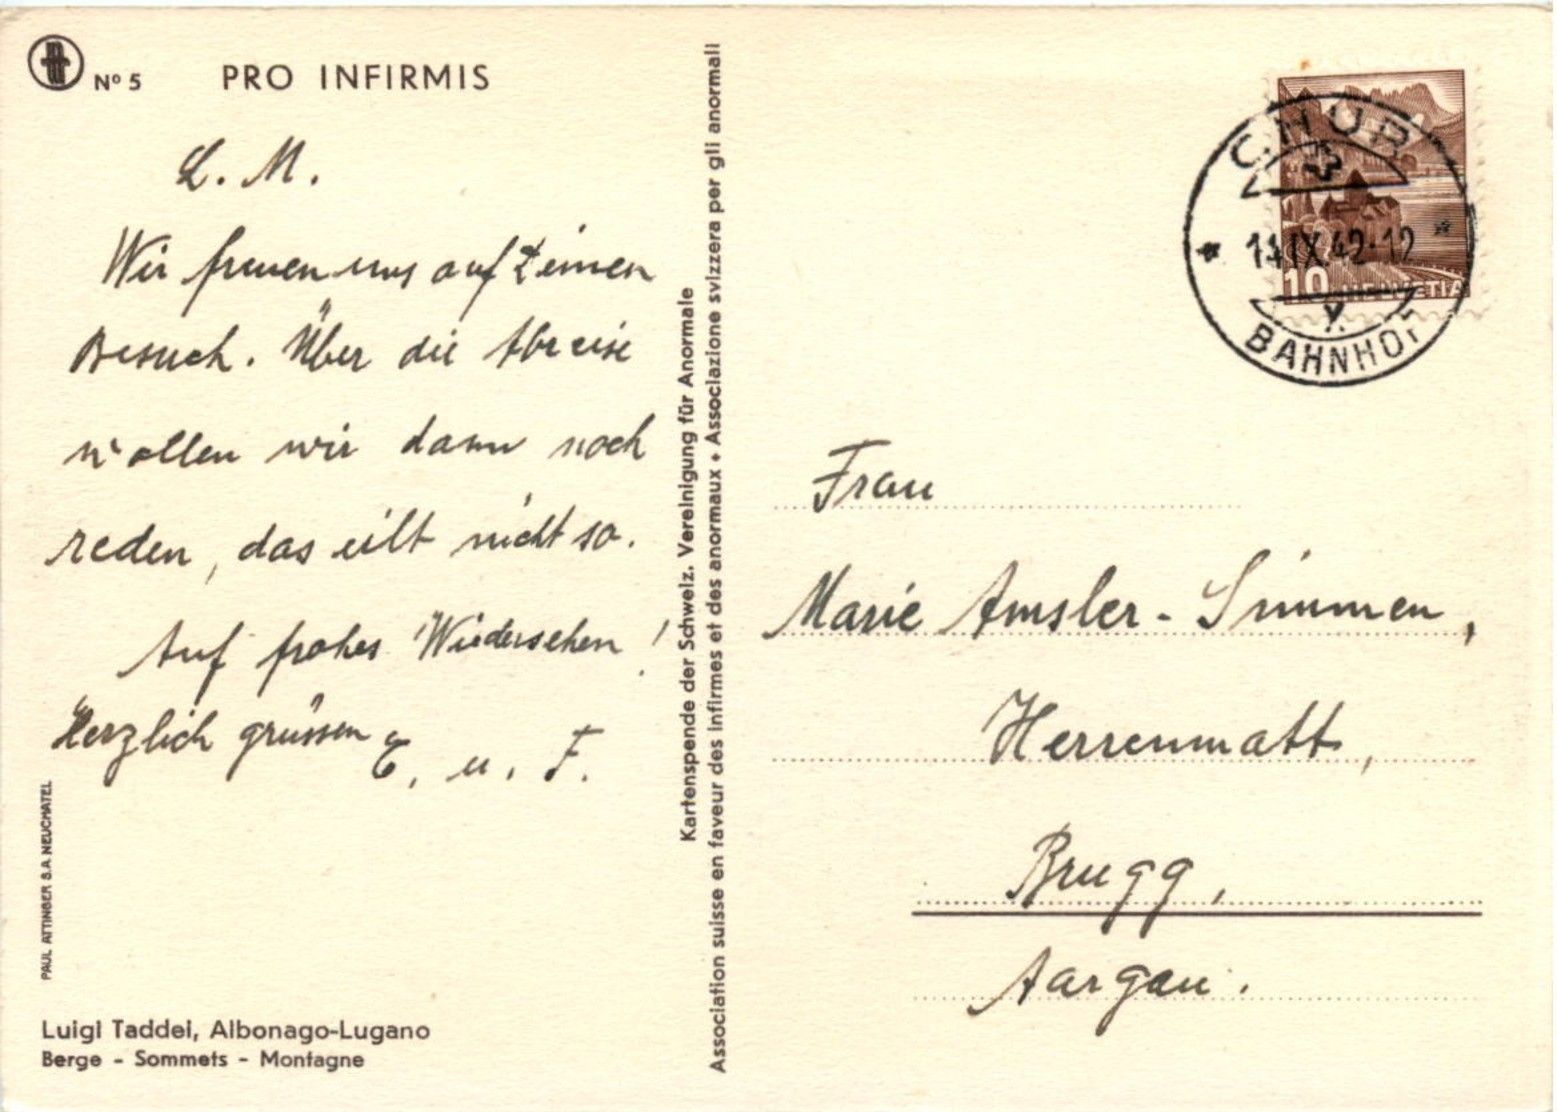 Nº 5 PRO INFIRMIS
L. M.
Wir freuen uns auf Deinen
Besuch. Über die Abreise
wollen wir dann noch
reden, das eilt nicht so.
Auf frohes Wiedersehen!
Herzlich grüssen E. u. F.
PAUL ATTINGER S.A. NEUCHATEL
Luigi Taddei, Albonago-Lugano
Berge - Sommets - Montagne
Kartenspende der Schweiz. Vereinigung für Anormale
Association suisse en faveur des infirmes et des anormaux • Associazione svizzera per gli anormali
CHUR
14.IX.42-12
BAHNHOF
10 HELVETIA
Frau
Marie Amsler-Simmen,
Herrenmatt,
Brugg,
Aargau.